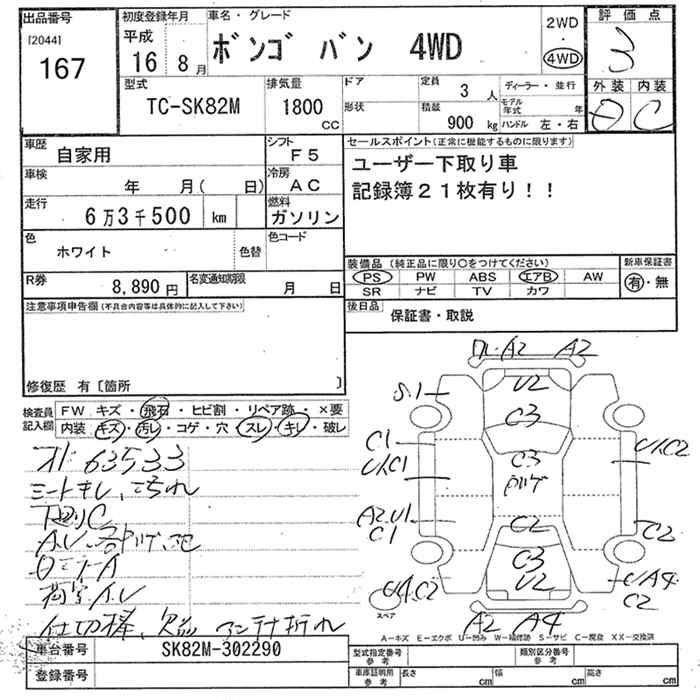 出品番号
[2044]
167
初度登録年月
平成
16 8 月
車名・グレード
ボンゴ バン 4WD
2WD
・
4WD
評価点
3
外装 内装
D C
型式
TC-SK82M
排気量
1800
CC
ドア
形状
定員
3 人
積載
900 kg
ディーラー・並行
モデル年式 年
ハンドル 左・右
車歴
自家用
シフト
F5
車検
年 月( 日)
冷房
AC
走行
6万3千500 km
燃料
ガソリン
色
ホワイト
色替
色コード
R券
8,890 円
名変通知期限
月 日
セールスポイント(正常に機能するものに限ります)
ユーザー下取り車
記録簿21枚有り!!
装備品(純正品に限り○をつけてください)
PS PW ABS エアB AW
SR ナビ TV カワ
新車保証書
有・無
後日品
保証書・取説
注意事項申告欄(不具合内容等は具体的に記入して下さい)
修復歴 有〔箇所 〕
検査員記入欄
FW キズ・飛石・ヒビ割・リペア跡・×要
内装 キズ・汚レ・コゲ・穴・スレ・キレ・破レ
才: 63533
シートキレ、こわれ
下回りC
仕切棒、欠品 アンテナ折れ
A2 A2
U2
S.1
C3
C1
U1.C1
C3
U1.C2
A2.U1
C1
C2
C2
C3
U2
U4.C2
U4A4
C2
スペア
A2 A4
A−キズ E−エクボ U−凹み W−補修跡 S−サビ C−腐食 XX−交換済
車台番号
SK82M-302290
登録番号
型式指定番号
参考
類別区分番号
参考
車庫証明用
参考
長さ cm
幅 cm
高さ cm